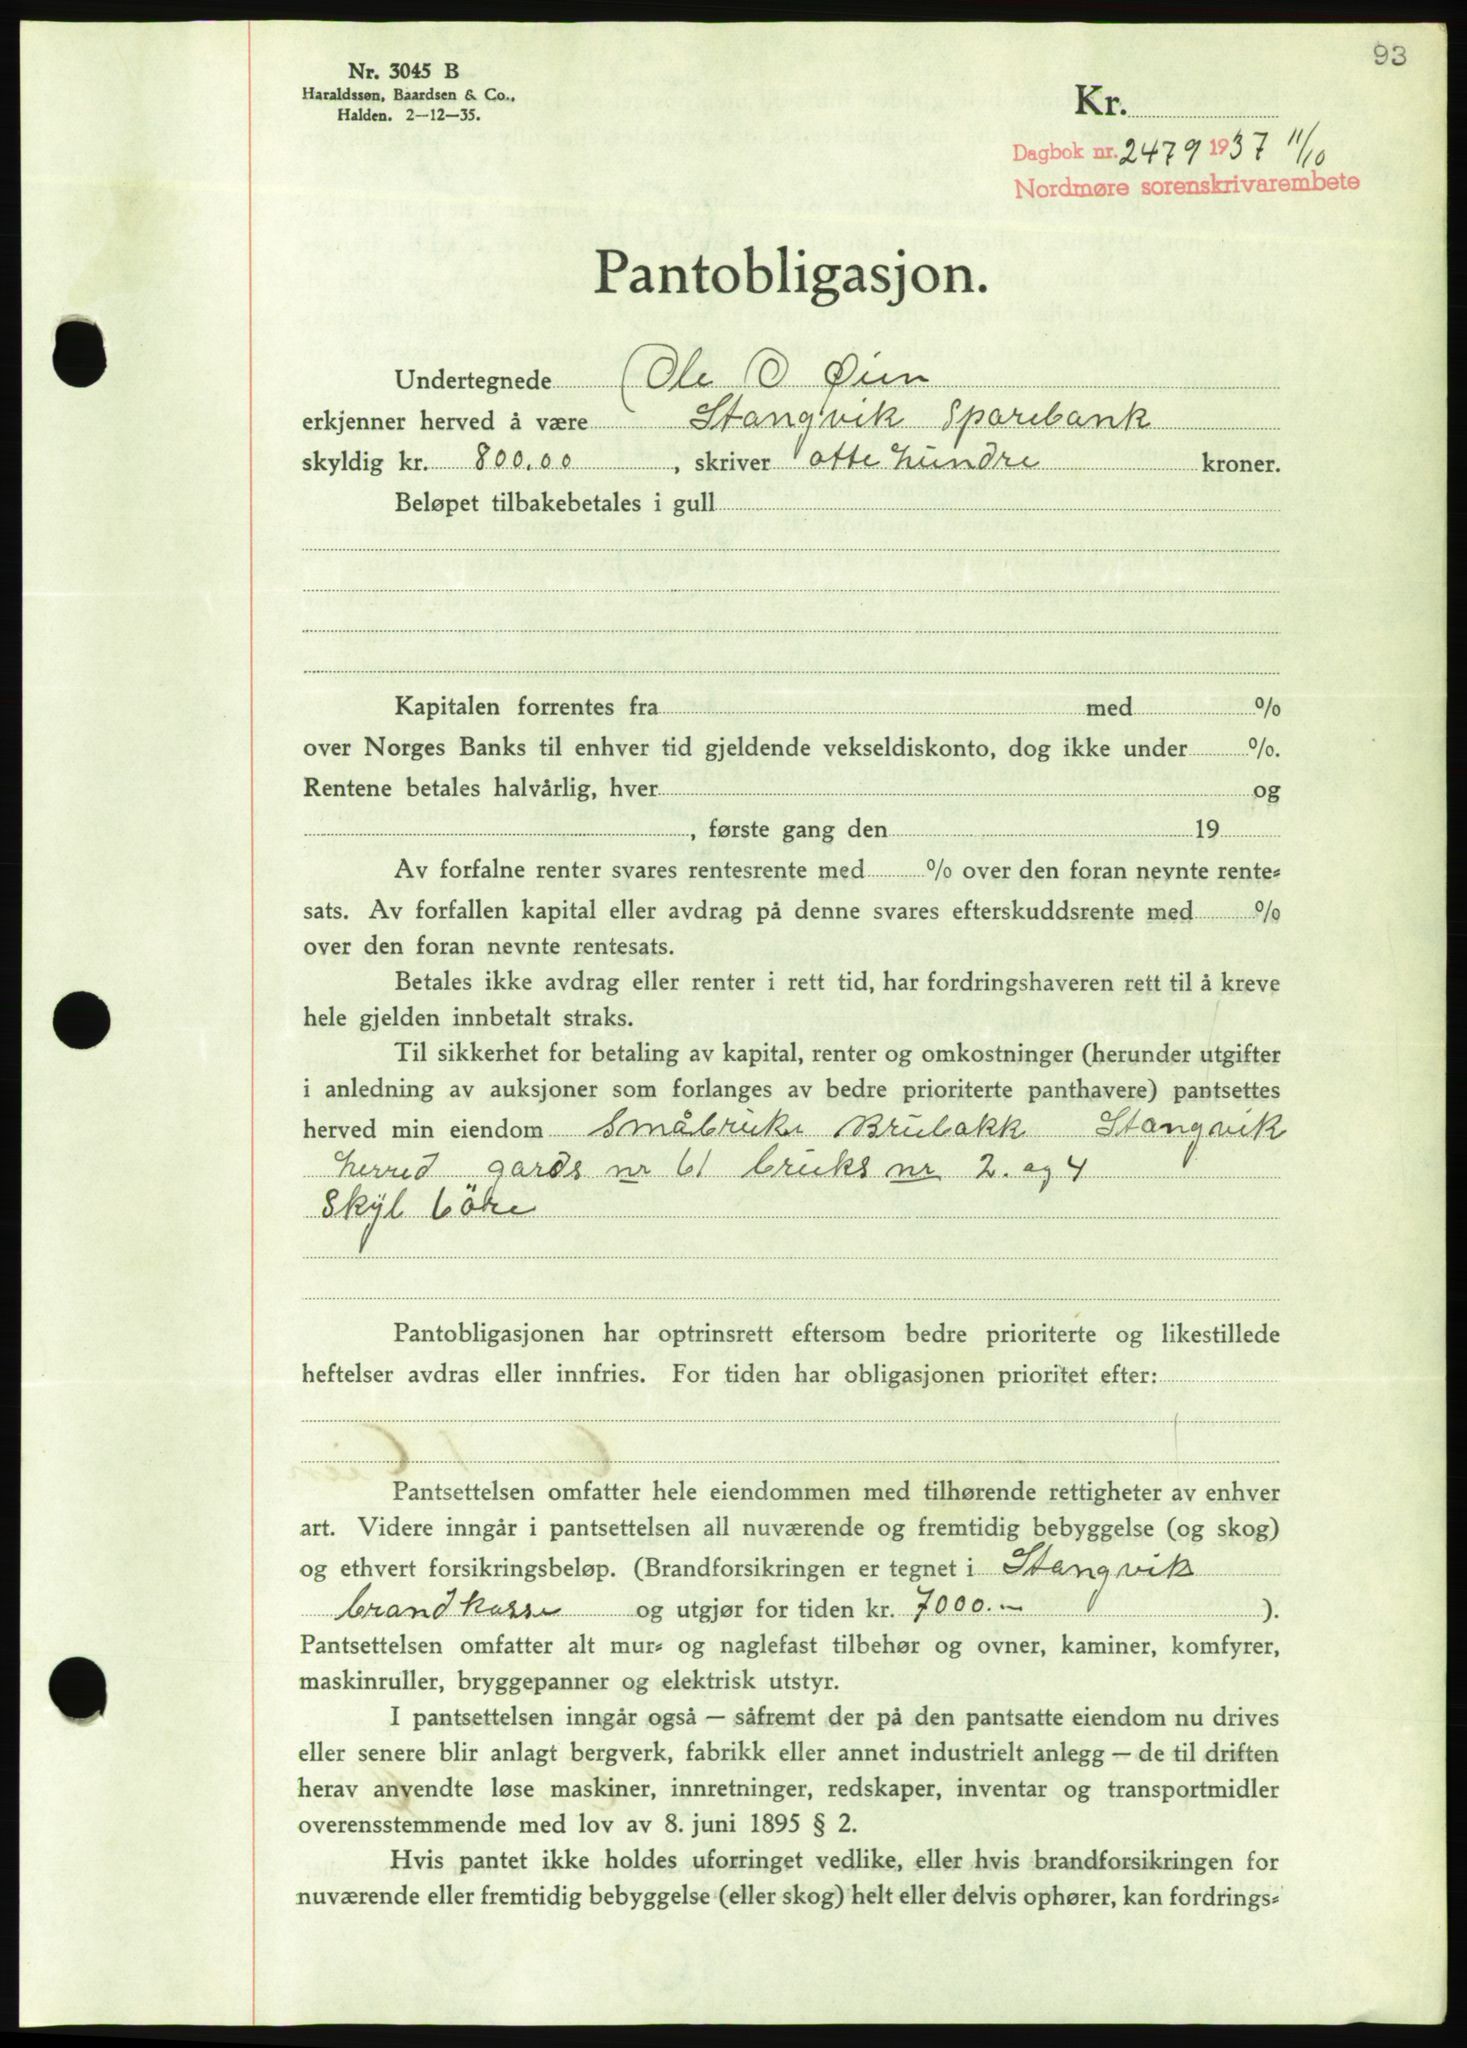 93
Nr. 3045 B
Haraldssøn, Baardsen & Co.,
Halden. 2—12—35.
Kr.
Dagbok nr. 2479 1937 11/10
Nordmøre sorenskrivarembete
Pantobligasjon.
Undertegnede Ole O Øien
erkjenner herved å være Stangvik Sparebank
skyldig kr. 800,00, skriver otte hundre kroner.
Beløpet tilbakebetales i gull
Kapitalen forrentes fra med %
over Norges Banks til enhver tid gjeldende vekseldiskonto, dog ikke under %.
Rentene betales halvårlig, hver og
, første gang den 19
Av forfalne renter svares rentesrente med % over den foran nevnte rente-
sats. Av forfallen kapital eller avdrag på denne svares efterskuddsrente med %
over den foran nevnte rentesats.
Betales ikke avdrag eller renter i rett tid, har fordringshaveren rett til å kreve
hele gjelden innbetalt straks.
Til sikkerhet for betaling av kapital, renter og omkostninger (herunder utgifter
i anledning av auksjoner som forlanges av bedre prioriterte panthavere) pantsettes
herved min eiendom Småbruke Brubakk Stangvik
herred gards nr 61 bruks nr 2. og 4
Skyl 6 öre
Pantobligasjonen har optrinsrett eftersom bedre prioriterte og likestillede
heftelser avdras eller innfries. For tiden har obligasjonen prioritet efter:
Pantsettelsen omfatter hele eiendommen med tilhørende rettigheter av enhver
art. Videre inngår i pantsettelsen all nuværende og fremtidig bebyggelse (og skog)
og ethvert forsikringsbeløp. (Brandforsikringen er tegnet i Stangvik
brandkasse og utgjør for tiden kr. 7000.— ).
Pantsettelsen omfatter alt mur- og naglefast tilbehør og ovner, kaminer, komfyrer,
maskinruller, bryggepanner og elektrisk utstyr.
I pantsettelsen inngår også — såfremt der på den pantsatte eiendom nu drives
eller senere blir anlagt bergverk, fabrikk eller annet industrielt anlegg — de til driften
herav anvendte løse maskiner, innretninger, redskaper, inventar og transportmidler
overensstemmende med lov av 8. juni 1895 § 2.
Hvis pantet ikke holdes uforringet vedlike, eller hvis brandforsikringen for
nuværende eller fremtidig bebyggelse (eller skog) helt eller delvis ophører, kan fordrings-